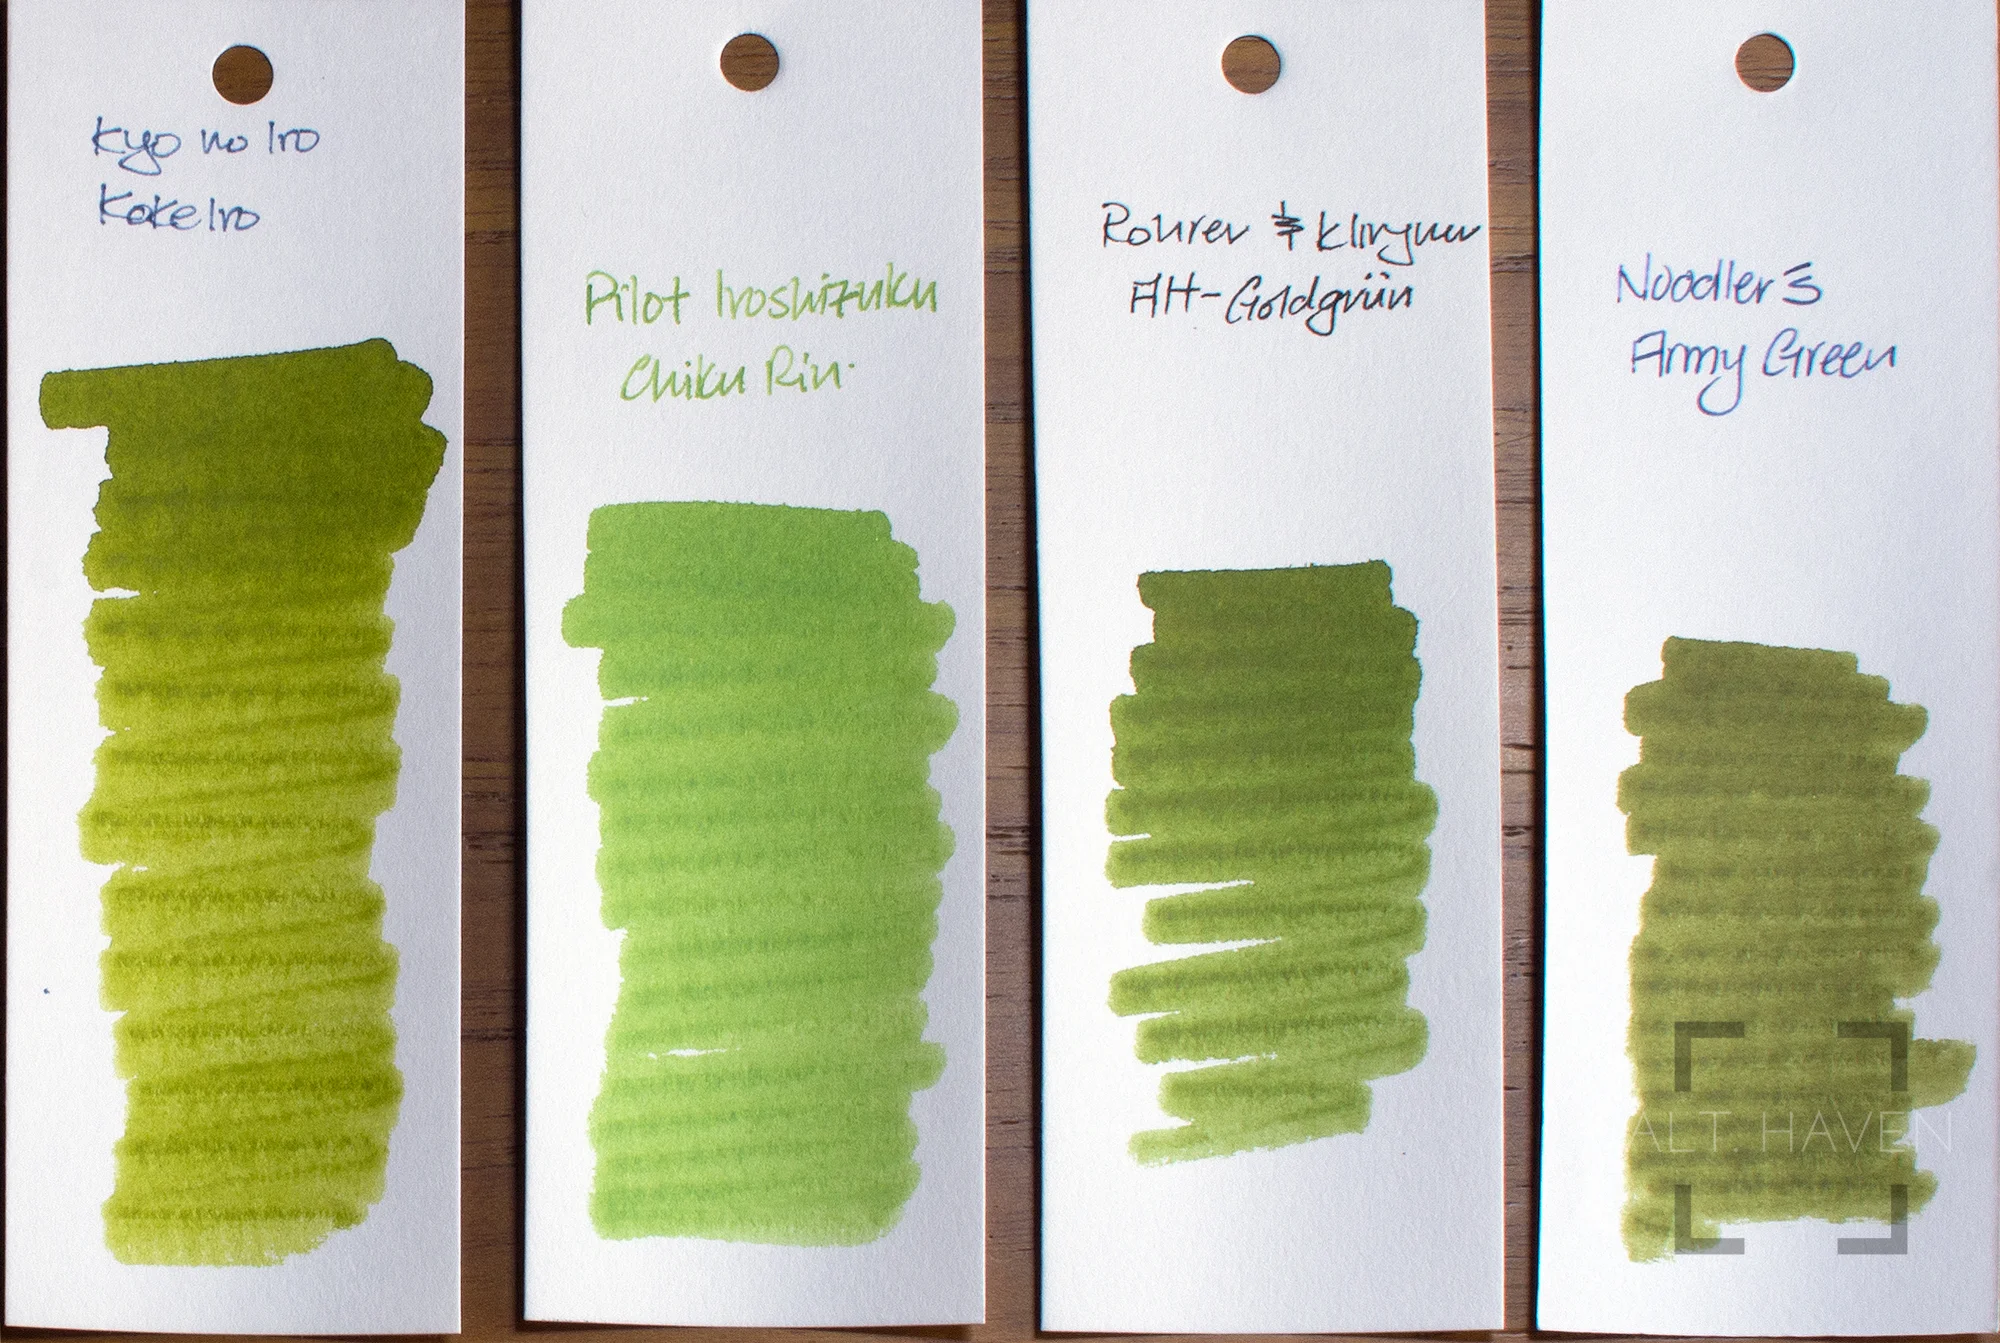 Kyo no Iro
KokeIro
Pilot Iroshizuku
Chiku Rin.
Rohrer & Klingner
AH-Goldgrün
Noodler's
Army Green
ALT. HAVEN